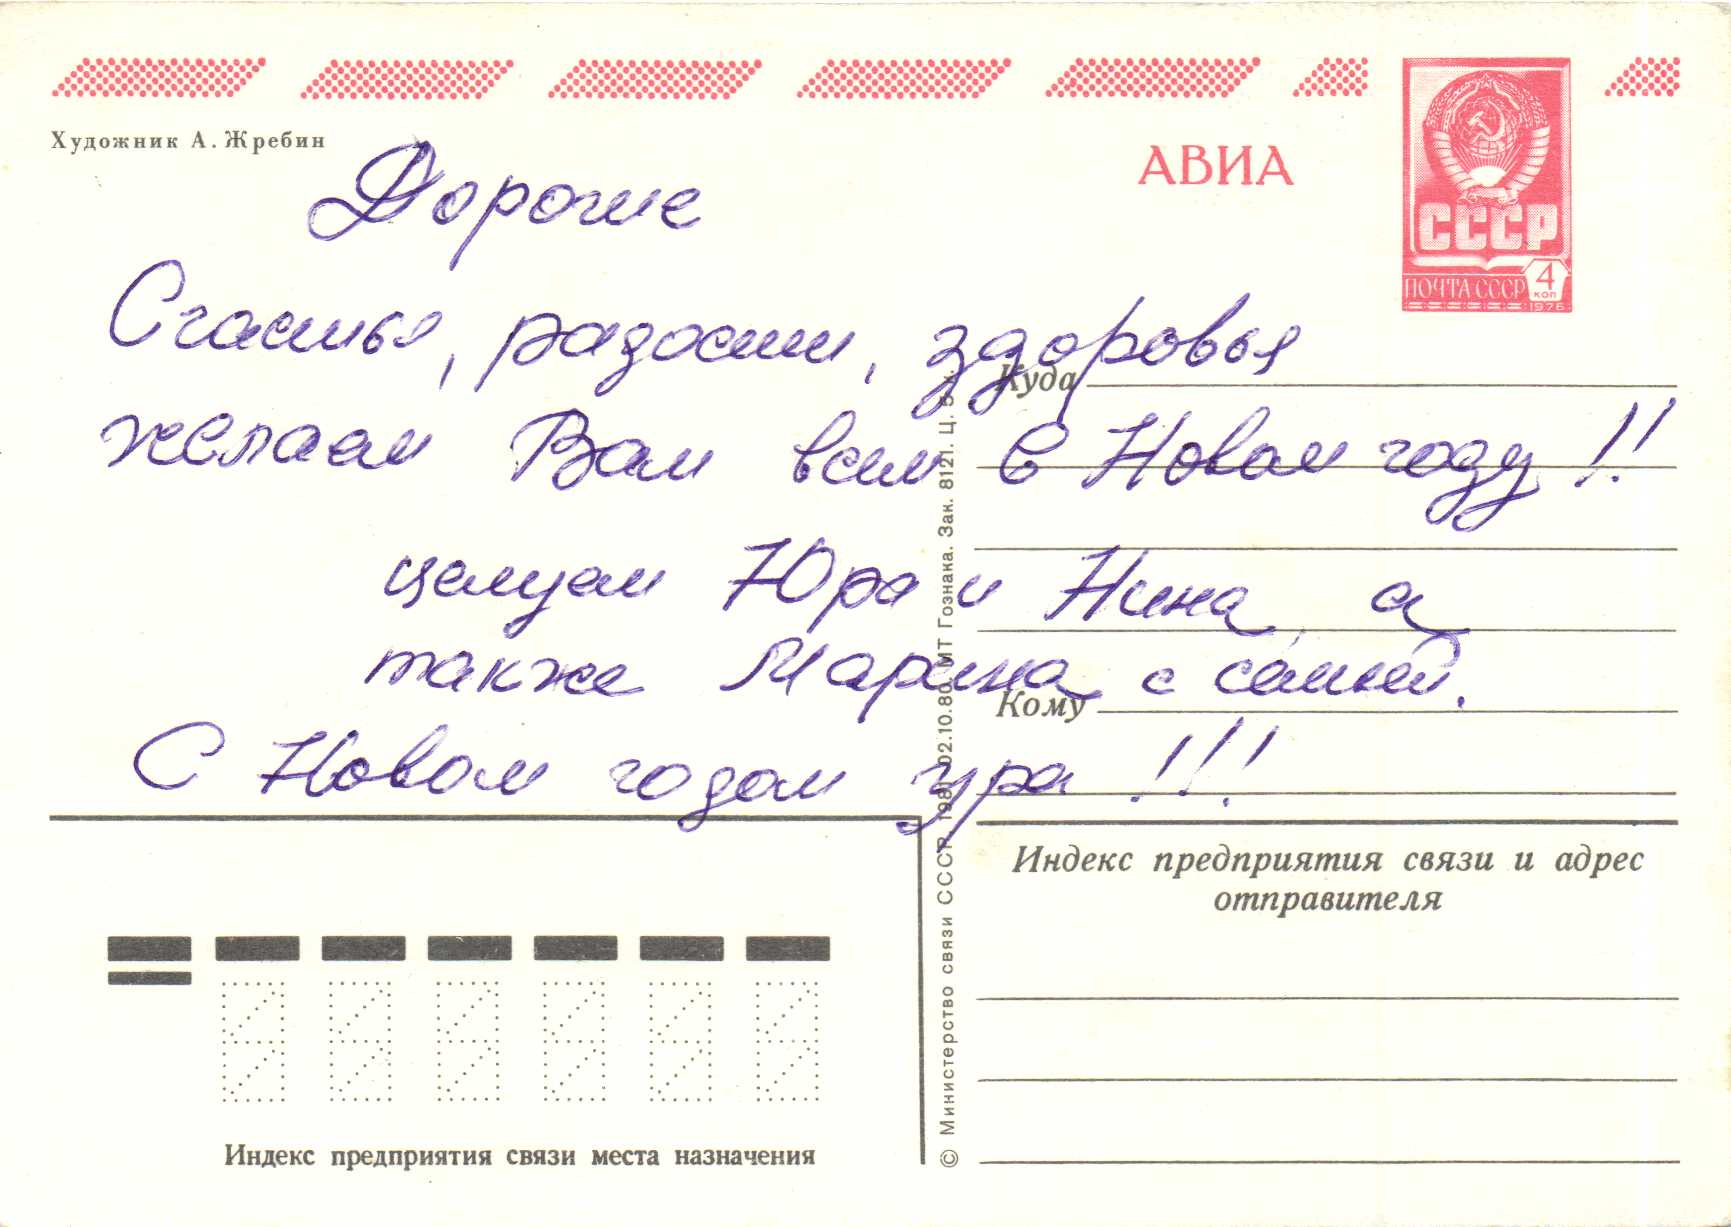 Художник А. Жребин
АВИА
СССР
ПОЧТА СССР 4 КОП
1976
Дорогие
Счастья, радости, здоровья
желаем Вам всем в Новом году!!
целуем Юра и Нина, а
также Марина с семьей.
С Новым годом ура!!!
Куда
Кому
Индекс предприятия связи и адрес
отправителя
Индекс предприятия связи места назначения
© Министерство связи СССР, 1980 02.10.80. МТ Гознака. Зак. 8121. Ц. 5 к.